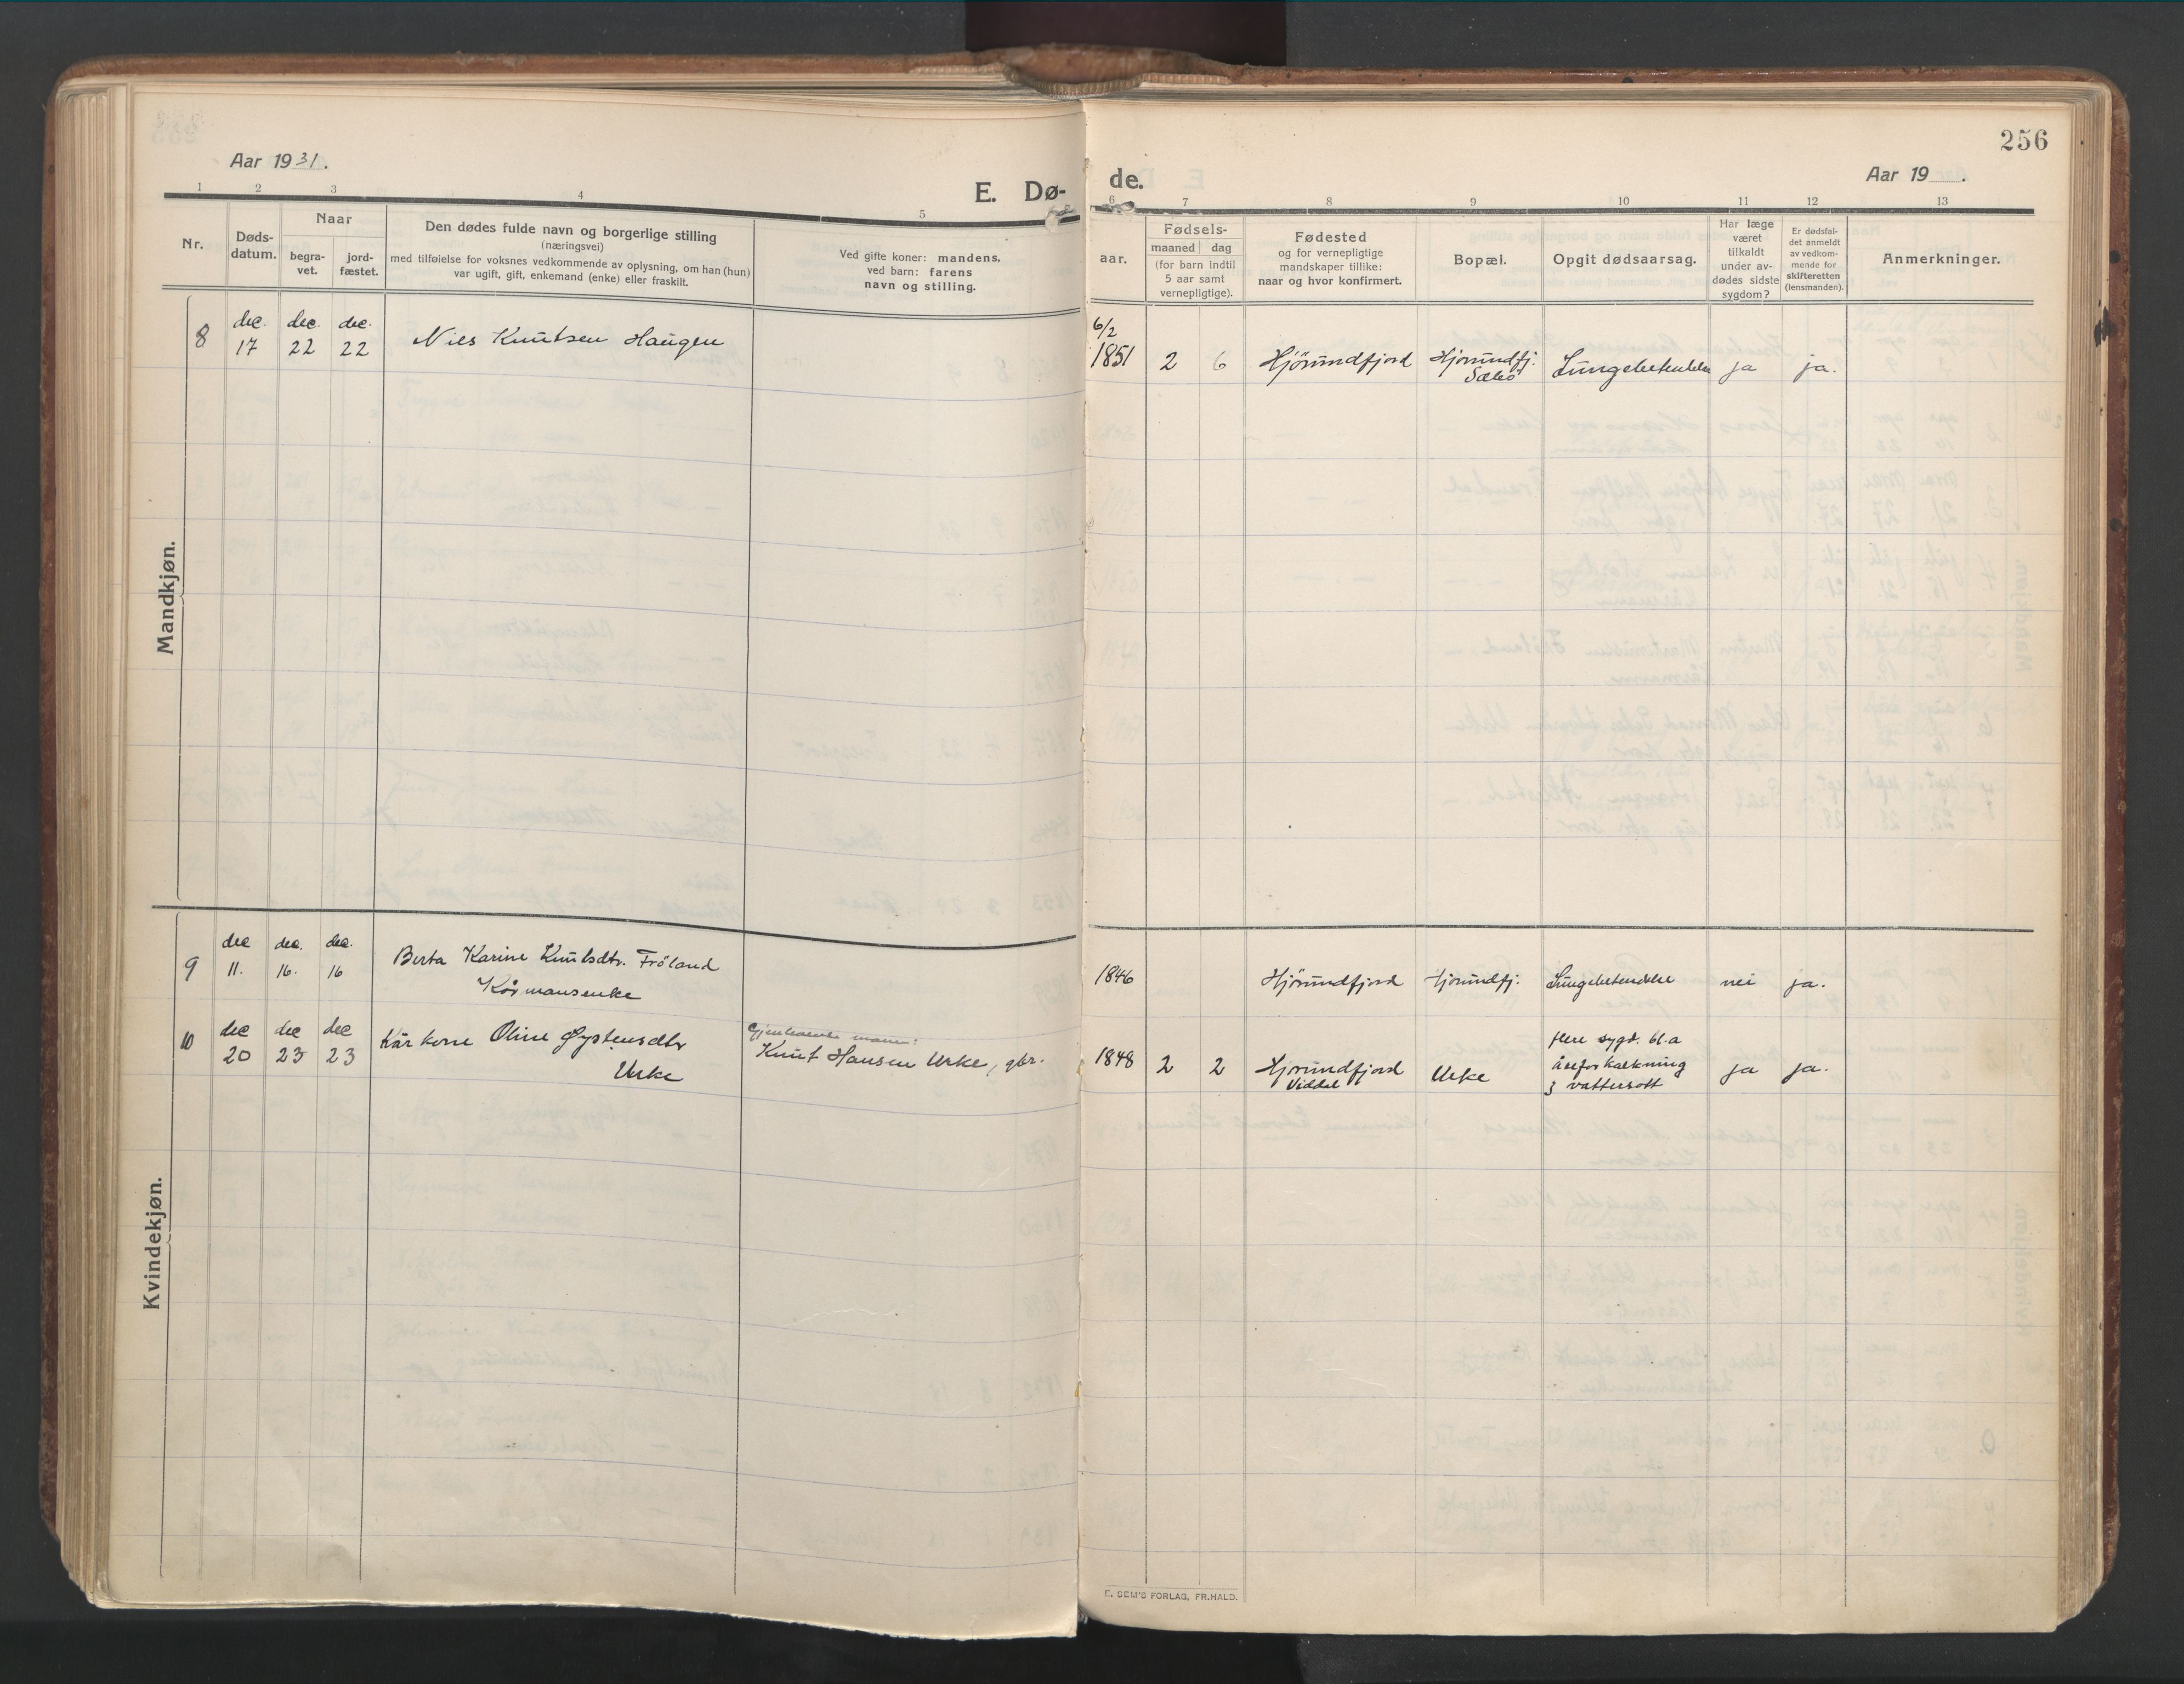 Aar 1931.
E. Dø-
1 2 3 4 5
Nr.
Døds-
datum.
Naar
begra-
vet.
jord-
fæstet.
Den dødes fulde navn og borgerlige stilling
(næringsvei)
med tilføielse for voksnes vedkommende av oplysning, om han (hun)
var ugift, gift, enkemand (enke) eller fraskilt.
Ved gifte koner: mandens,
ved barn: farens
navn og stilling.
Mandkjøn.
8
dec. 17
dec. 22
dec. 22
Nils Knutsen Haugen
Kvindekjøn.
9
dec 11.
dec. 16.
dec. 16
Berta Karine Knutsdtr. Fröland
Kårmansenke
10
dec 20
dec 23
dec 23
Kårkone Oline Øystensdtr
Urke
Gjenlevende mann:
Knut Hansen Urke, gbr.
256
de.
Aar 19 .
6 7 8 9 10 11 12 13
aar.
Fødsels-
maaned dag
(for barn indtil
5 aar samt
vernepligtige).
Fødested
og for vernepligtige
mandskaper tillike:
naar og hvor konfirmert.
Bopæl.
Opgit dødsaarsag.
Har læge
været
tilkaldt
under av-
dødes sidste
sygdom?
Er dødsfal-
det anmeldt
av vedkom-
mende for
skifteretten
(lensmanden).
Anmerkninger.
6/2
1851 2 6 Hjörundfjord Hjorundfj. Lungebetendelse ja ja.
Sæbö
1846 Hjörundfjord Hjorundfj. Lungebetendelse nei ja.
1848 2 2 Hjorundfjord
Viddal
Urke
flere sygd. bl.a
åreforkalkning
& vattersott
ja ja.
E. SEM'S FORLAG, FR.HALD.